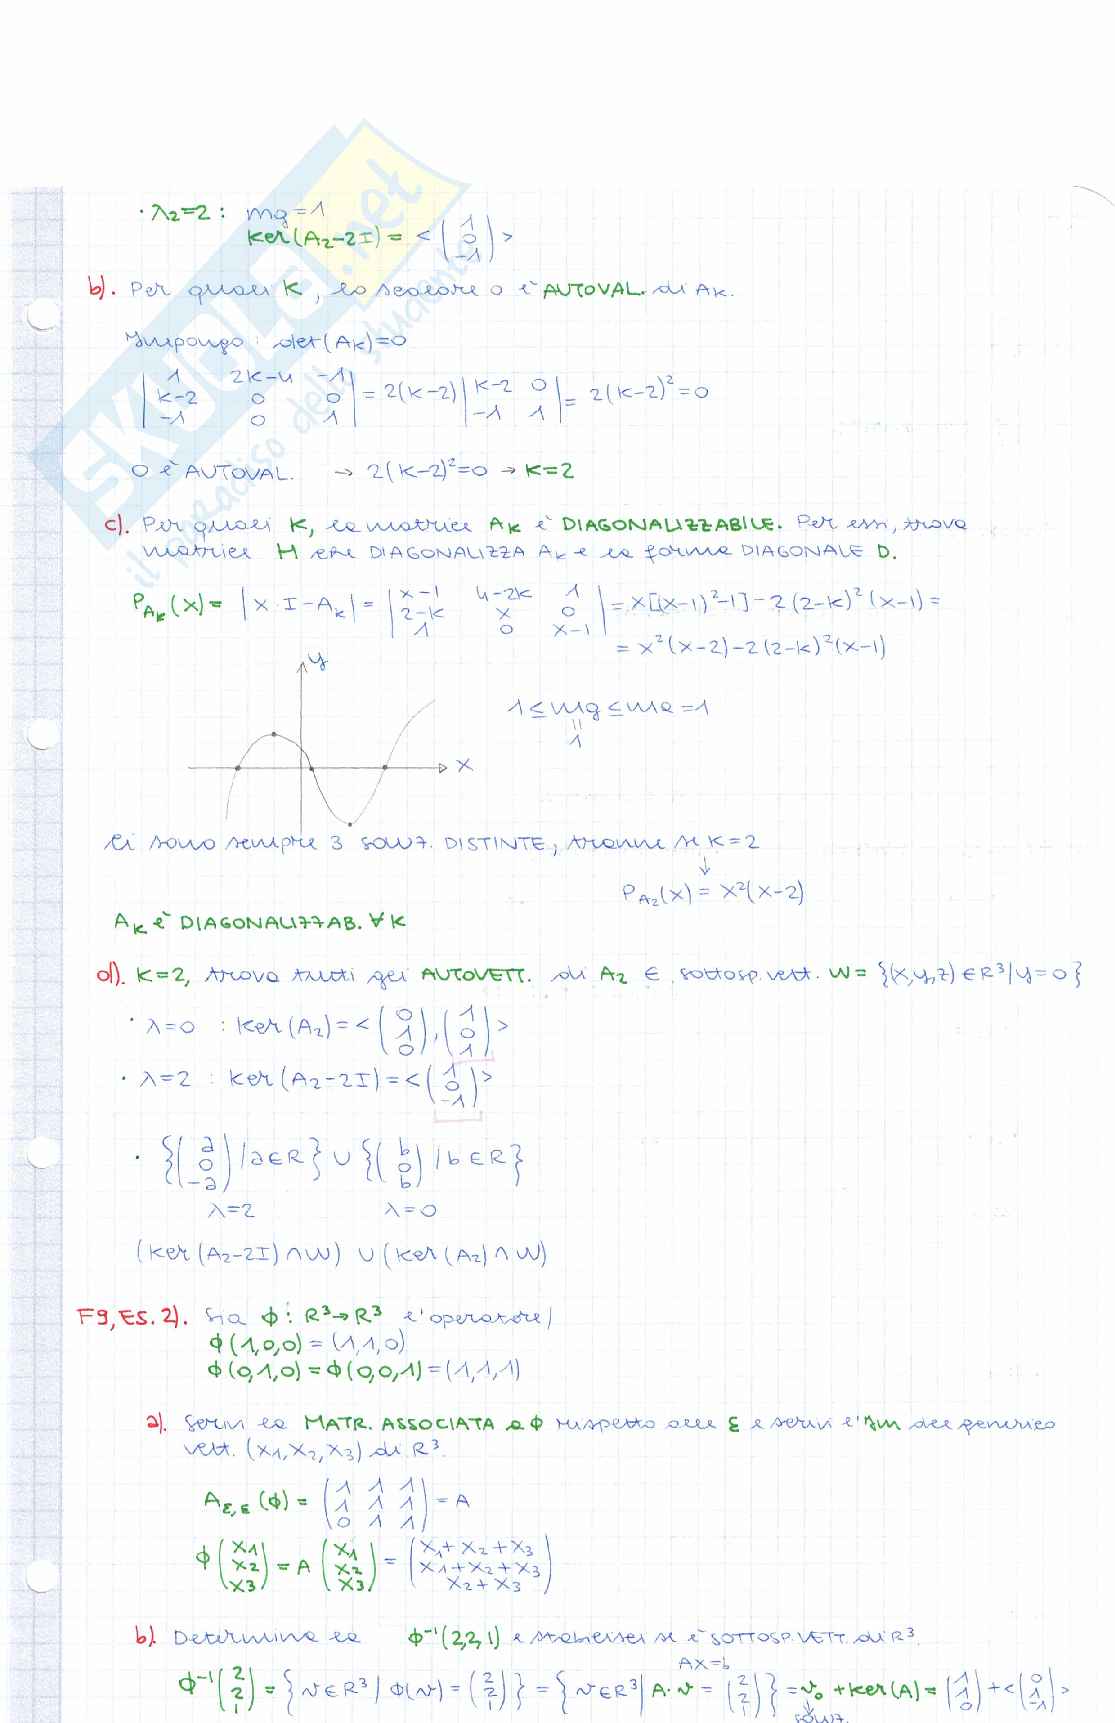 · λ₂=2 : mg=1
Ker(A₂-2I) = <(1 0 -1)>
b). Per quali K, lo scalare 0 è AUTOVAL. di Aₖ.
Impongo : det(Aₖ)=0
|1 2K-4 -1|
|K-2 0 0| = 2(K-2) |K-2 0| = 2(K-2)²=0
|-1 0 1| |-1 1|
0 è AUTOVAL. → 2(K-2)²=0 → K=2
c). Per quali K, la matrice Aₖ è DIAGONALIZZABILE. Per essi, trova
matrice H che DIAGONALIZZA Aₖ e la forma DIAGONALE D.
P_Aₖ(x) = |x·I-Aₖ| = |x-1 4-2K 1|
|2-K x 0| = x[(x-1)²-1]-2(2-K)²(x-1) =
|1 0 x-1|
= x²(x-2)-2(2-K)²(x-1)
y
1≤mg≤ma=1
=
1
x
Ci sono sempre 3 soluz. DISTINTE, tranne se K=2
↓
P_A₂(x) = x²(x-2)
Aₖ è DIAGONALIZZAB. ∀K
d). K=2, trova tutti gli AUTOVETT. di A₂ ∈ sottosp. vett. W = {(x,y,z)∈R³/y=0}
· λ=0 : Ker(A₂) = <(0 1 0), (1 0 1)>
· λ=2 : Ker(A₂-2I) = <(1 0 -1)>
· {(a 0 -a) / a∈R} ∪ {(b 0 b) / b∈R}
λ=2 λ=0
(Ker(A₂-2I)∩W) ∪ (Ker(A₂)∩W)
F9, ES. 2). Sia ϕ: R³→R³ l'operatore/
ϕ(1,0,0) = (1,1,0)
ϕ(0,1,0) = ϕ(0,0,1) = (1,1,1)
a). Scrivi la MATR. ASSOCIATA a ϕ rispetto alle ε e scrivi l'Im del generico
vett. (x₁,x₂,x₃) di R³.
A_ε,ε(ϕ) = (1 1 1
1 1 1
0 1 1) = A
ϕ(x₁ x₂ x₃) = A (x₁ x₂ x₃) = (x₁+x₂+x₃
x₁+x₂+x₃
x₂+x₃)
b). Determina la ϕ⁻¹(2,2,1) e stabilisci se è SOTTOSP. VETT. di R³.
AX=b
ϕ⁻¹(2 2 1) = {v∈R³ / ϕ(v) = (2 2 1)} = {v∈R³ | A·v = (2 2 1)} = v₀ + Ker(A) = (1 1 0) + <(0 1 -1)>
↓
soluz.
SKUOLA.net
il paradiso dello studente